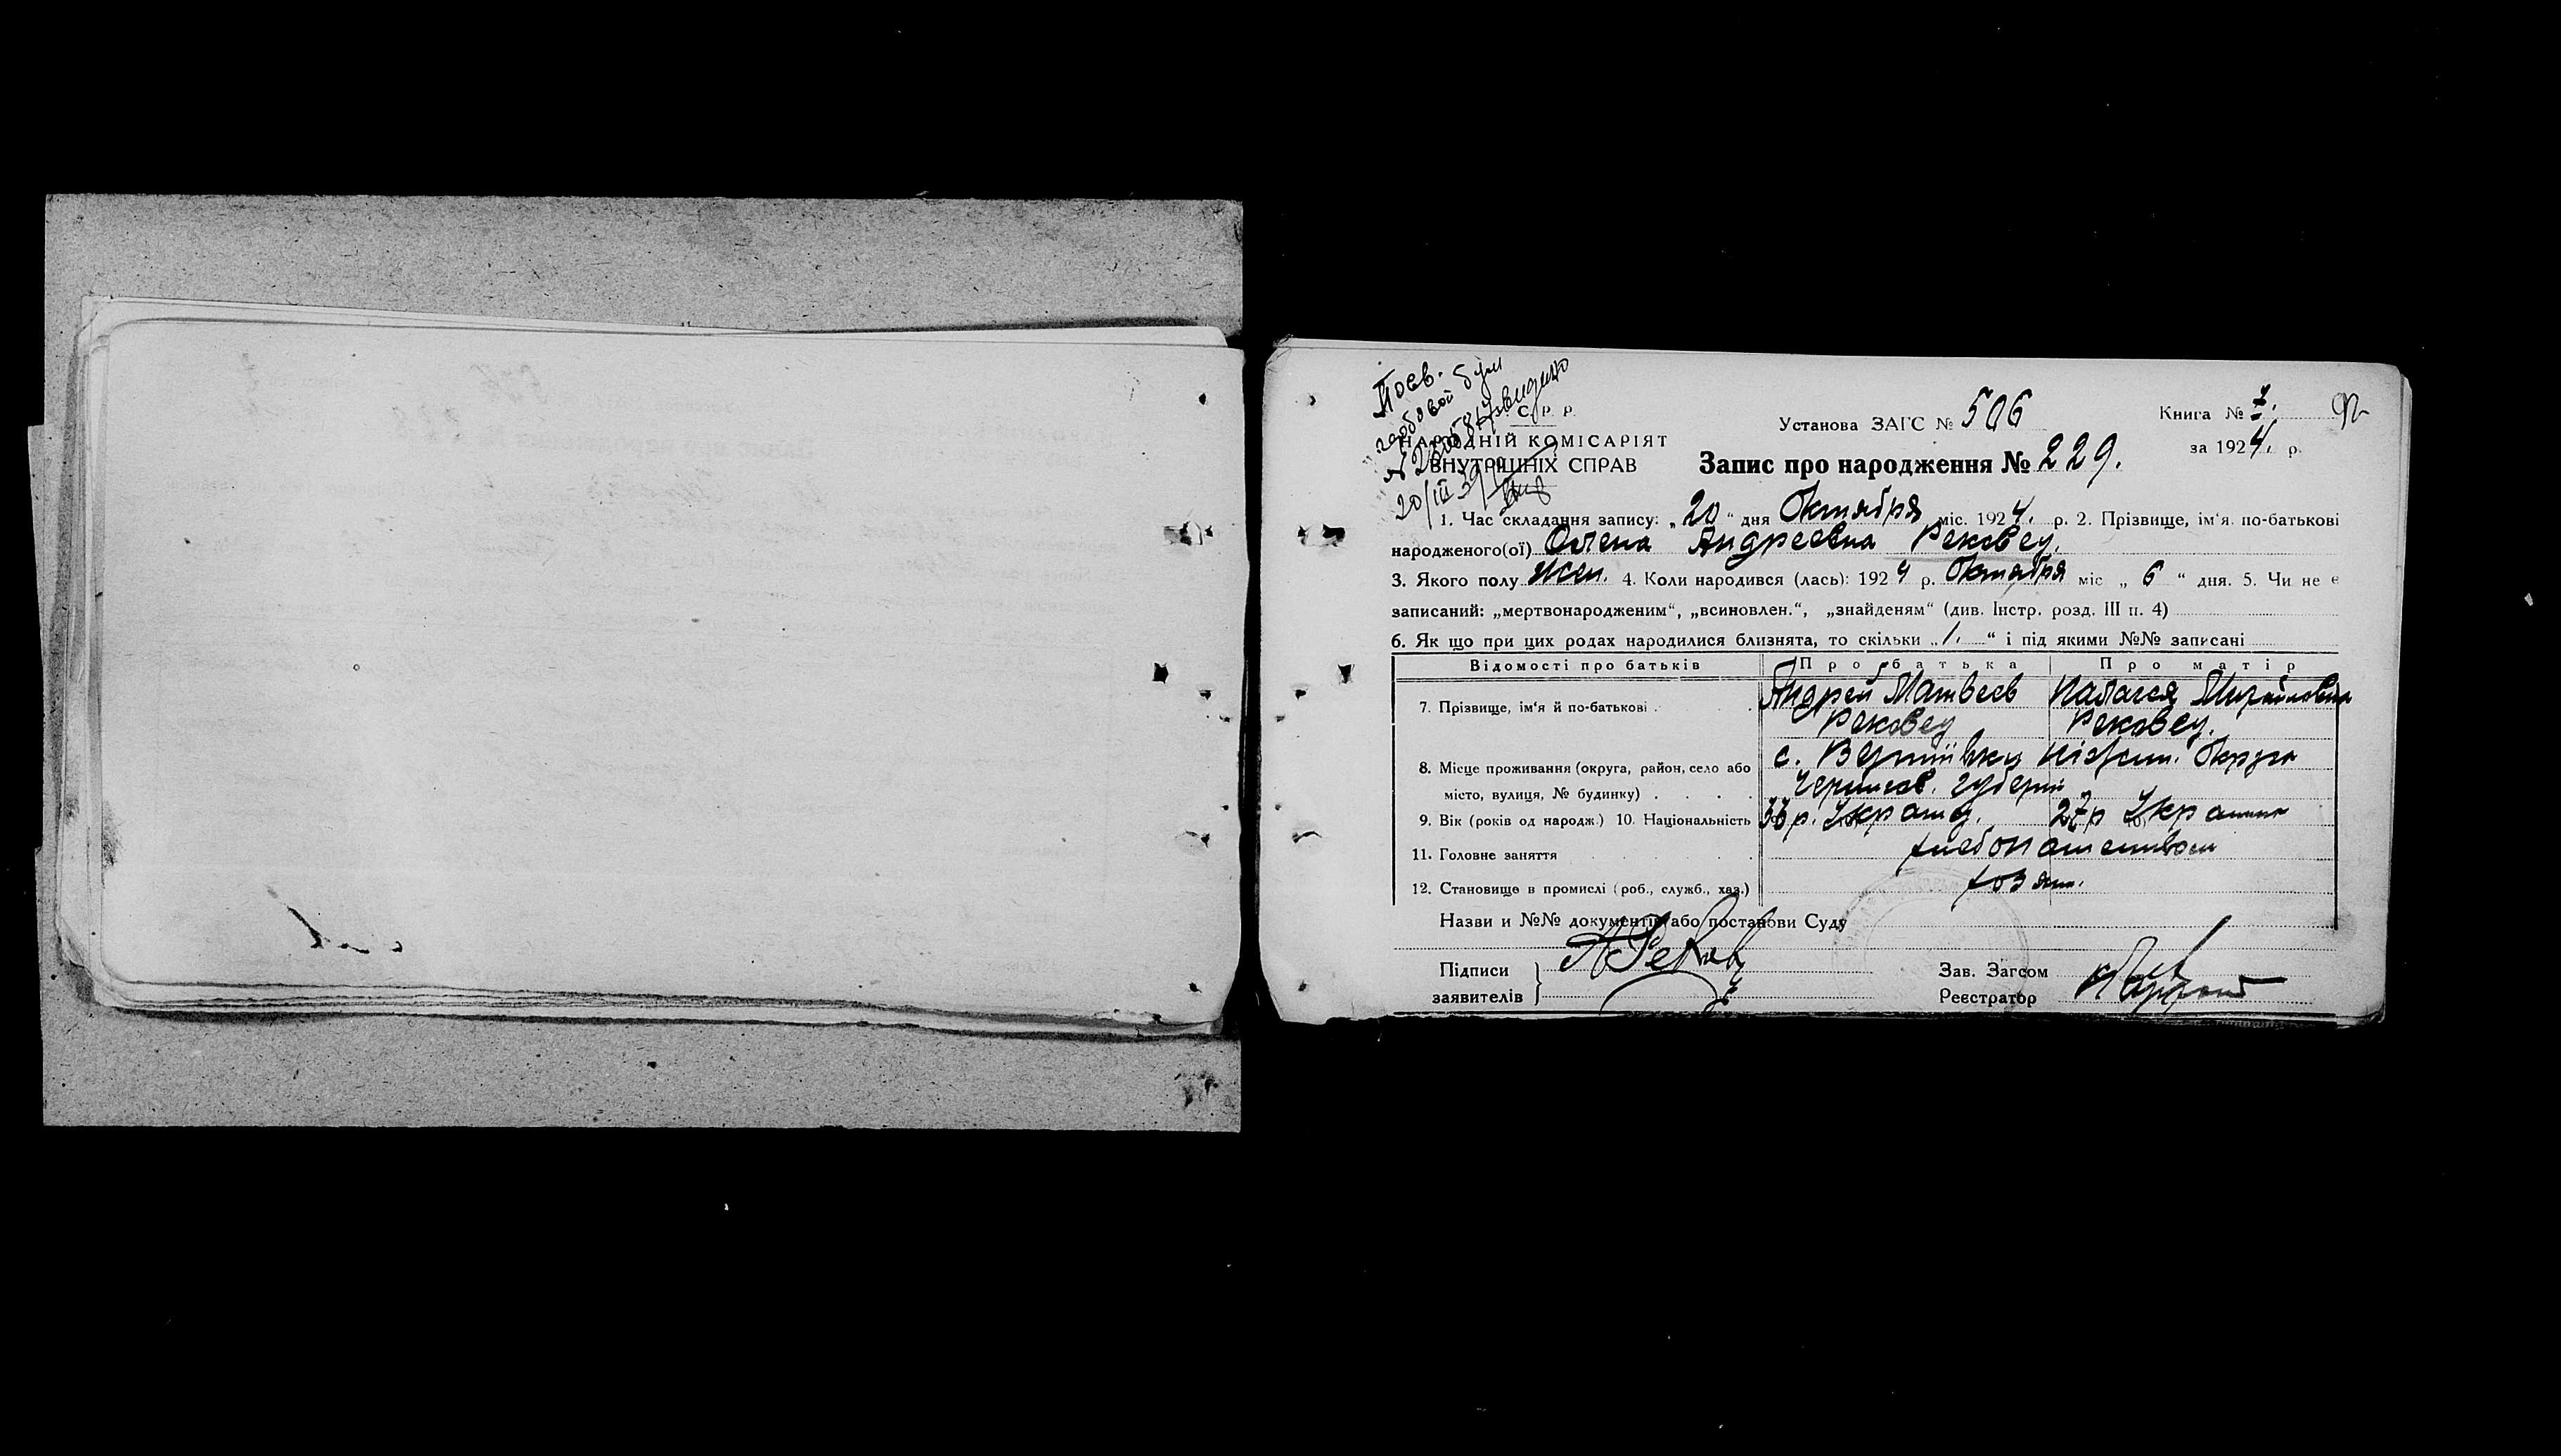 Посв.
гербовой бум
20/III 39
С. Р. Р.
НАРОДНІЙ КОМІСАРІЯТ
ВНУТРІШНІХ СПРАВ
Установа ЗАГС № 506
Книга № 7.
за 1924. р.
Запис про народження № 229.
1. Час складання запису: „20“ дня Октября міс. 1924. р. 2. Прізвище, ім'я по-батькові
народженого(ої) Олена Андреевна Рековец.
3. Якого полу жен. 4. Коли народився (лась): 1924 р. Октября міс „6“ дня. 5. Чи не є
записаний: „мертвонародженим“, „всиновлен.“, „знайденям“ (див. Інстр. розд. III п. 4)
6. Як що при цих родах народилися близнята, то скільки „1.“ і під якими №№ записані
Відомості про батьків Про батька Про матір
7. Прізвище, ім'я й по-батькові Андрей Матвеев Палагея Михайловна
Рековец Рековец.
8. Місце проживання (округа, район, село або с. Вертіївку Ніжин. Округи
місто, вулиця, № будинку) Чернигов. губерні
9. Вік (років од народж.) 10. Національність 33 р. Украіц. 27 р Украинка
11. Головне заняття хлебопашеством
12. Становище в промислі (роб., служб., хаз.) хозяин.
Назви и №№ документів або постанови Суду
Підписи А Рековец
заявителів
Зав. Загсом
Реєстратор